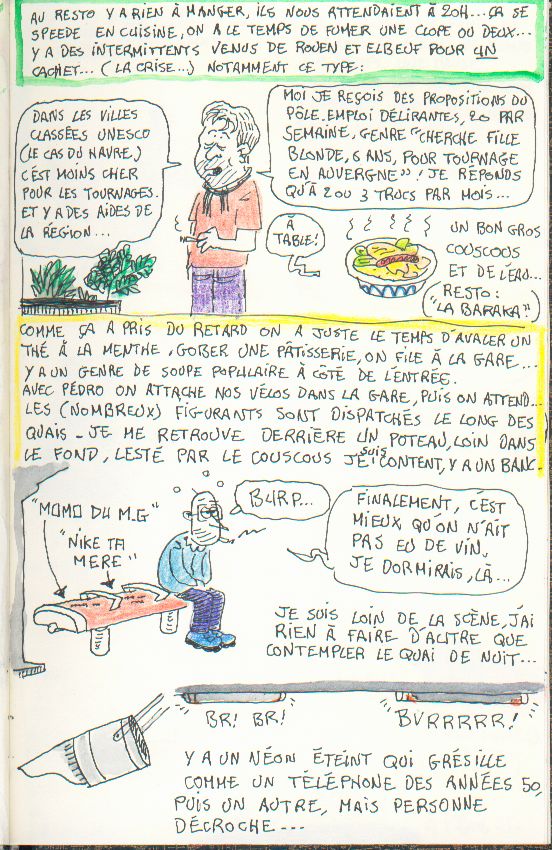 AU RESTO Y A RIEN À MANGER, ILS NOUS ATTENDAIENT À 20H...ÇA SE
SPEEDE EN CUISINE, ON A LE TEMPS DE FUMER UNE CLOPE OU DEUX...
Y A DES INTERMITTENTS VENUS DE ROUEN ET ELBEUF POUR UN
CACHET... (LA CRISE...) NOTAMMENT CE TYPE:
DANS LES VILLES
CLASSÉES UNESCO
(LE CAS DU HAVRE,)
C'EST MOINS CHER
POUR LES TOURNAGES.
ET Y A DES AIDES DE
LA REGION...
MOI JE REÇOIS DES PROPOSITIONS DU
PÔLE.EMPLOI DÉLIRANTES, 20 PAR
SEMAINE, GENRE "CHERCHE FILLE
BLONDE, 6 ANS, POUR TOURNAGE
EN AUVERGNE"! JE RÉPONDS
QU'À 2 OU 3 TRUCS PAR MOIS...
À
TABLE!
UN BON GROS
COUSCOUS
ET DE L'EAU...
RESTO:
"LA BARAKA"
COMME ÇA A PRIS DU RETARD ON A JUSTE LE TEMPS D'AVALER UN
THÉ À LA MENTHE, GOBER UNE PÂTISSERIE, ON FILE À LA GARE...
Y A UN GENRE DE SOUPE POPULAIRE À CÔTÉ DE L'ENTRÉE.
AVEC PÉDRO ON ATTACHE NOS VÉLOS DANS LA GARE, PUIS ON ATTEND...
LES (NOMBREUX) FIGURANTS SONT DISPATCHÉS LE LONG DES
QUAIS - JE ME RETROUVE DERRIÈRE UN POTEAU, LOIN DANS
LE FOND, LESTÉ PAR LE COUSCOUS JE SUIS CONTENT, Y A UN BANC.
"MOMO DU M.G"
"NIKE TA
MERE"
BURP...
FINALEMENT, C'EST
MIEUX QU'ON N'AIT
PAS EU DE VIN,
JE DORMIRAIS, LÀ...
JE SUIS LOIN DE LA SCÈNE, J'AI
RIEN À FAIRE D'AUTRE QUE
CONTEMPLER LE QUAI DE NUIT...
BR! BR!
BVRRRRR!
Y A UN NÉON ÉTEINT QUI GRÉSILLE
COMME UN TÉLÉPHONE DES ANNÉES 50,
PUIS UN AUTRE, MAIS PERSONNE
DÉCROCHE---